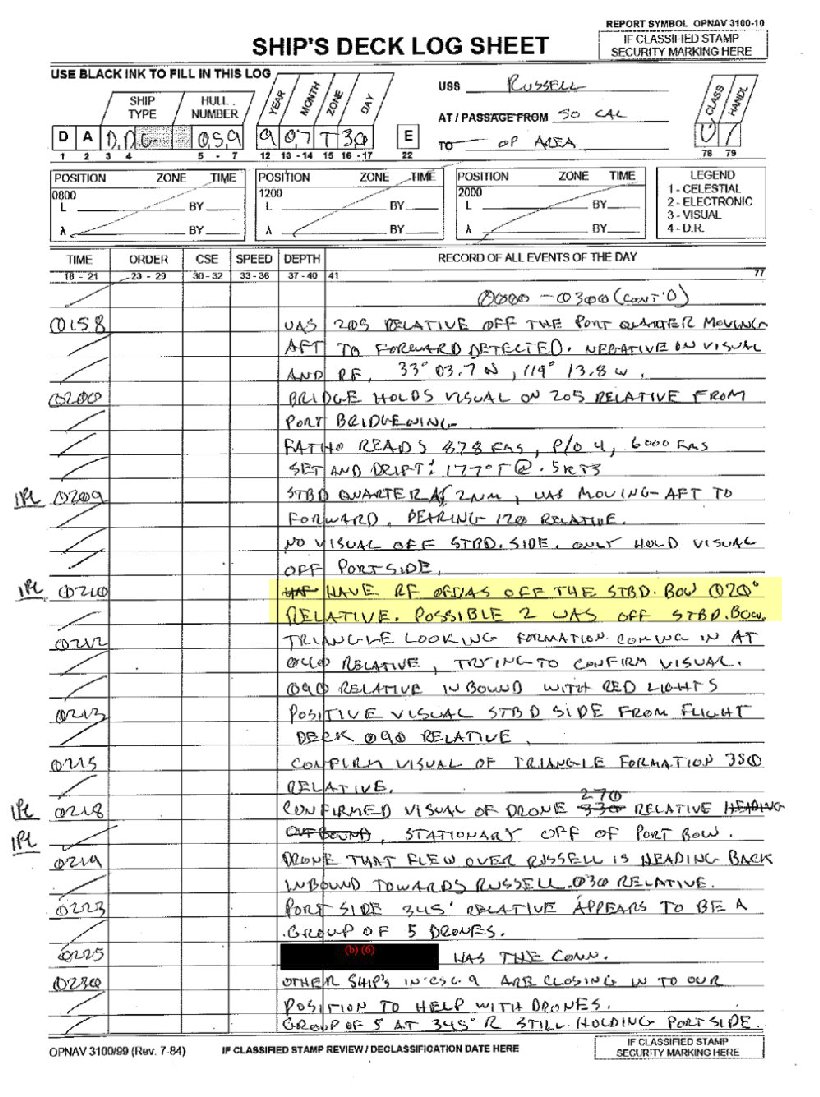 REPORT SYMBOL OPNAV 3100-10
SHIP'S DECK LOG SHEET
IF CLASSIFIED STAMP
SECURITY MARKING HERE
USE BLACK INK TO FILL IN THIS LOG
SHIP TYPE HULL NUMBER YEAR MONTH ZONE DAY
USS RUSSELL
AT / PASSAGE FROM SO CAL
TO OP AREA
CLASS HANDL
D A D D G 059 9 07 T 30 E U
1 2 3 4 5 - 7 12 13 - 14 15 16 - 17 22 78 79
POSITION ZONE TIME POSITION ZONE TIME POSITION ZONE TIME LEGEND
0800 1200 2000
L BY L BY L BY
λ BY λ BY λ BY
1 - CELESTIAL
2 - ELECTRONIC
3 - VISUAL
4 - D.R.
TIME ORDER CSE SPEED DEPTH RECORD OF ALL EVENTS OF THE DAY
18 - 21 23 - 29 30 - 32 33 - 36 37 - 40 41 77
0000 - 0300 (CONT'D)
0158 UAS 205 RELATIVE OFF THE PORT QUARTER MOVING
AFT TO FORWARD DETECTED. NEGATIVE ON VISUAL
AND RF, 33° 03.7 N, 119° 13.8 W.
0200 BRIDGE HOLDS VISUAL ON 205 RELATIVE FROM
PORT BRIDGEWING
FATHO READS 878 FMS, P/O 4, 6000 FMS
SET AND DRIFT: 177°T @ .5KTS
IPL 0209 STBD QUARTER AT 2NM, UAS MOVING AFT TO
FORWARD, BEARING 120 RELATIVE.
NO VISUAL OFF STBD. SIDE. ONLY HOLD VISUAL
OFF PORT SIDE.
IPL 0210 HAVE RF OF UAS OFF THE STBD. BOW 020°
RELATIVE. POSSIBLE 2 UAS OFF STBD. BOW.
0212 TRIANGLE LOOKING FORMATION COMING IN AT
040 RELATIVE, TRYING TO CONFIRM VISUAL.
090 RELATIVE INBOUND WITH RED LIGHTS
0213 POSITIVE VISUAL STBD SIDE FROM FLIGHT
DECK 090 RELATIVE.
0215 CONFIRM VISUAL OF TRIANGLE FORMATION 350
RELATIVE.
270
IPL 0218 CONFIRMED VISUAL OF DRONE 330 RELATIVE HEADING
IPL OUTBOUND, STATIONARY OFF OF PORT BOW.
0219 DRONE THAT FLEW OVER RUSSELL IS HEADING BACK
INBOUND TOWARDS RUSSELL 030 RELATIVE.
0223 PORT SIDE 345° RELATIVE APPEARS TO BE A
GROUP OF 5 DRONES.
0225 (b) (6) HAS THE CONN.
0230 OTHER SHIP'S IN CSG 9 ARE CLOSING IN TO OUR
POSITION TO HELP WITH DRONES.
GROUP OF 5 AT 345° R STILL HOLDING PORT SIDE.
OPNAV 3100/99 (Rev. 7-84) IF CLASSIFIED STAMP REVIEW / DECLASSIFICATION DATE HERE
IF CLASSIFIED STAMP
SECURITY MARKING HERE